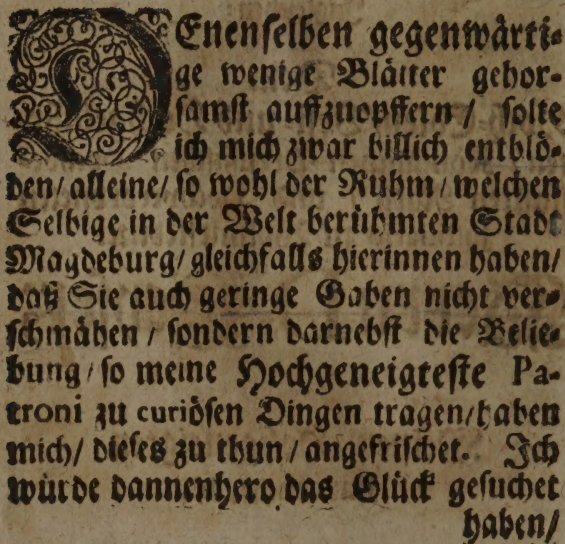 DEnenselben gegenwärti-
ge wenige Blätter gehor-
samst auffzuopffern / solte
ich mich zwar billich entblö-
den/ alleine/ so wohl der Ruhm / welchen
Selbige in der Welt berühmten Stadt
Magdeburg/ gleichfalls hierinnen haben/
daß Sie auch geringe Gaben nicht ver-
schmähen / sondern darnebst die Belie-
bung / so meine Hochgeneigteste Pa-
troni zu curiösen Dingen tragen/ haben
mich/ dieses zu thun / angefrischet. Ich
würde dannenhero das Glück gesuchet
haben/